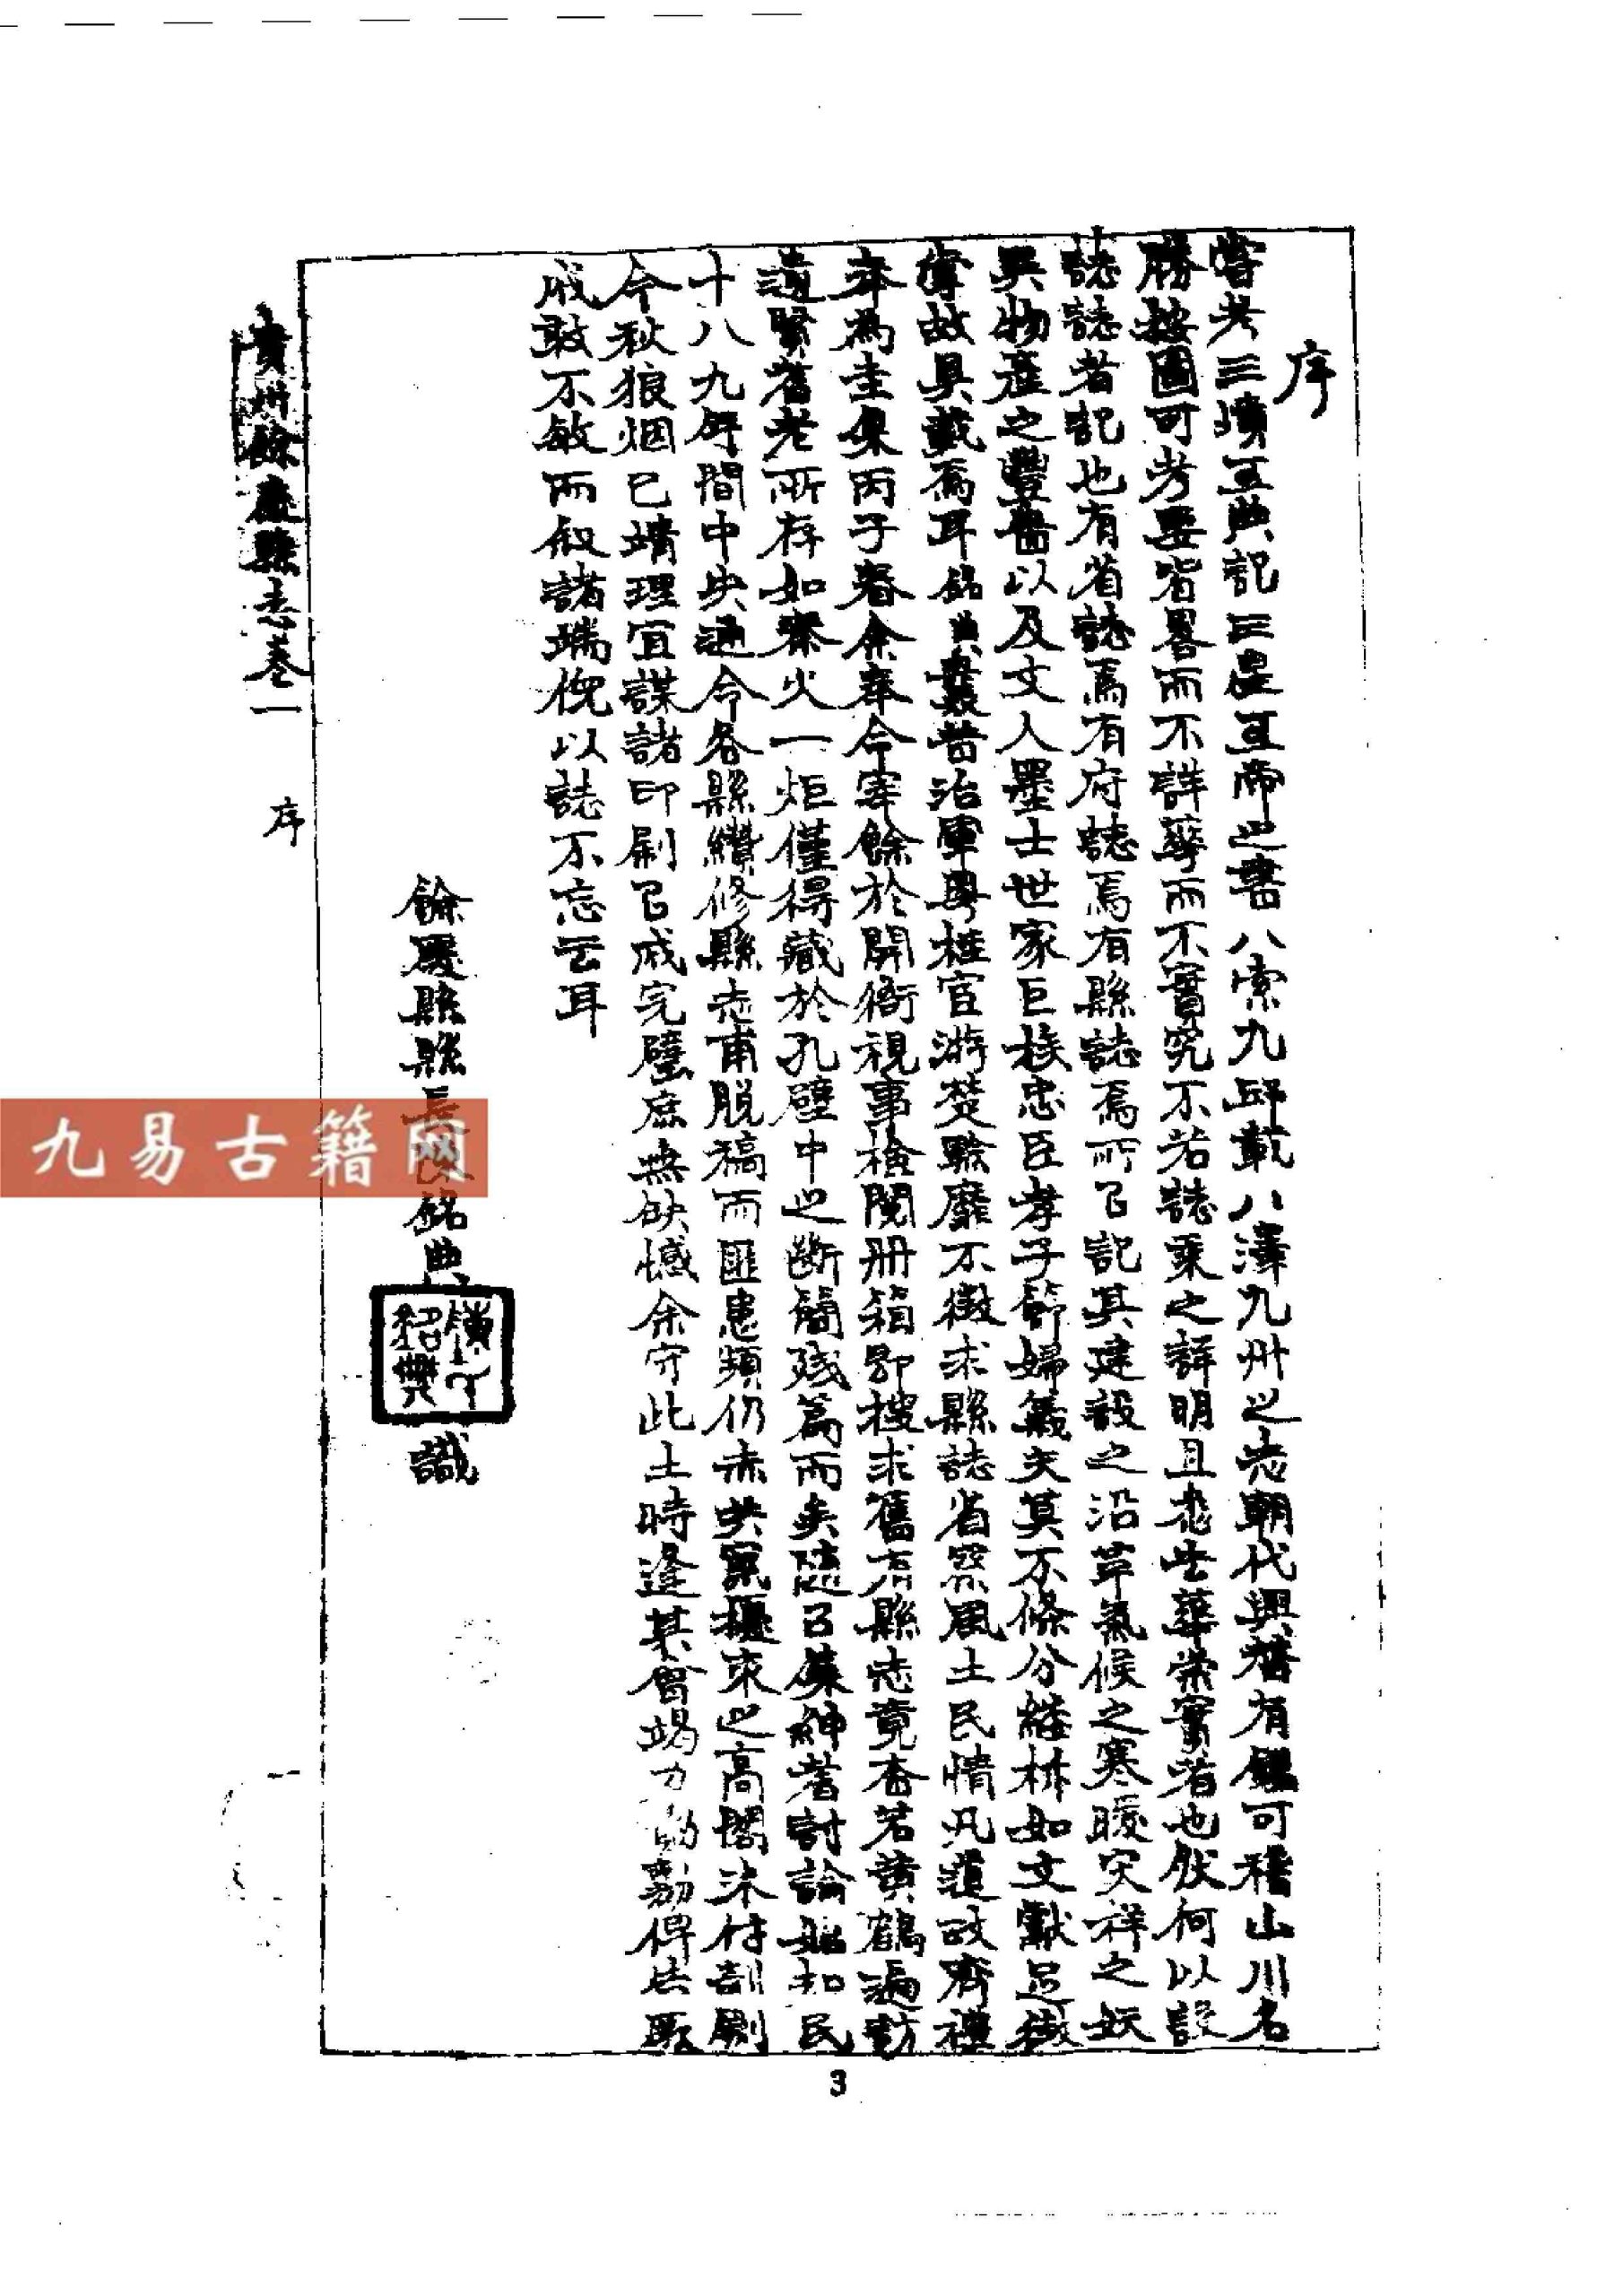 序
嘗考三墳五典記三皇五帝之書八索九邱載八澤九州之志朝代興替有鑑可稽山川名
勝按圖可考要皆畧而不詳華而不實究不若誌乘之詳明且非世華崇實者也然何以設
誌誌者記也有省誌焉有府誌焉有縣誌焉所以記其建設之沿革氣候之寒暖灾祥之妖
異物產之豐嗇以及文人墨士世家巨族忠臣孝子節婦義夫莫不條分縷析如文獻足徵
掌故具載焉耳銘典曩昔治軍粵桂宦游楚黔靡不徵求縣誌省察風土民情凡道政齊禮
奉為圭臬丙子春余奉令宰餘於開衙視事檢閱册籍即搜求舊有縣志竟杳若黄鶴遍訪
遺賢耆老所存如秦火一炬僅得藏於孔壁中之断簡残篇而矣隨召集紳耆討論始知民
十八九年間中央通令各縣纘修縣志甫脱稿而匪患頻仍赤共竄擾束之高閣未付剞劂
今秋狼烟已靖理宜謀諸印刷以成完璧庶無缺憾余守此土時逢其會竭力勷勷俾告厥
成敢不敏而叙諸端倪以誌不忘云耳
餘慶縣縣長 銘典 識
貴州餘慶縣志卷一 序
3
九易古籍网